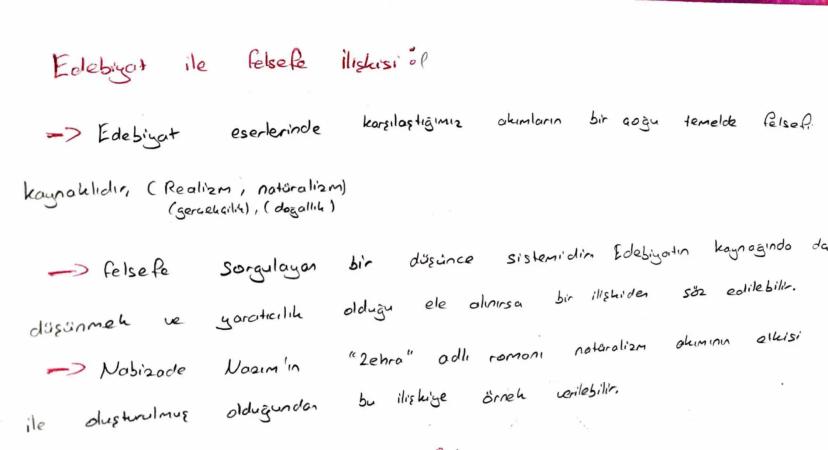 Edebiyat ile felsefe ilişkisi
—> Edebiyat eserlerinde karşılaştığımız akımların bir çoğu temelde felsefi
kaynaklıdır, (Realizm, natüralizm)
(gerçekçilik), (doğallık)
—> felsefe sorgulayan bir düşünce sistemidir. Edebiyatın kaynağında da
düşünmek ve yaratıcılık olduğu ele alınırsa bir ilişkiden söz edilebilir.
—> Nabizade Nazım'ın "Zehra" adlı romanı natüralizm akımının etkisi
ile oluşturulmuş olduğundan bu ilişkiye örnek verilebilir.